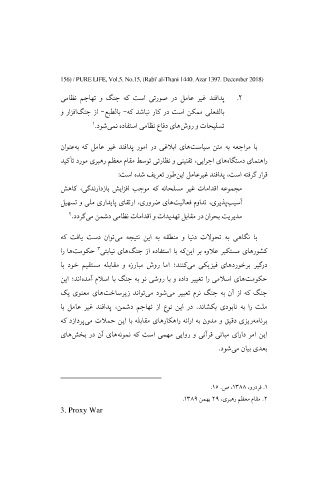 156) / PURE LIFE, Vol.5. No.15, (Rabi' al-Thani 1440. Azar 1397. December 2018)
۲. پدافند غیر عامل در صورتی است که جنگ و تهاجم نظامی
بالفعلی ممکن است در کار نباشد که- بالطبع- از جنگ‌افزار و
تسلیحات و روش‌های دفاع نظامی استفاده نمی‌شود.۱
با مراجعه به متن سیاست‌های ابلاغی در امور پدافند غیر عامل که به‌عنوان
راهنمای دستگاه‌های اجرایی، تقنینی و نظارتی توسط مقام معظم رهبری مورد تأکید
قرار گرفته است، پدافند غیرعامل این‌طور تعریف شده است:
مجموعه اقدامات غیر مسلحانه که موجب افزایش بازدارندگی، کاهش
آسیب‌پذیری، تداوم فعالیت‌های ضروری، ارتقای پایداری ملی و تسهیل
مدیریت بحران در مقابل تهدیدات و اقدامات نظامی دشمن می‌گردد.۲
با نگاهی به تحولات دنیا و منطقه به این نتیجه می‌توان دست یافت که
کشورهای مستکبر علاوه بر این‌که با استفاده از جنگ‌های نیابتی۳ حکومت‌ها را
درگیر برخوردهای فیزیکی می‌کنند؛ اما روش مبارزه و مقابله مستقیم خود با
حکومت‌های اسلامی را تغییر داده و با روشی نو به جنگ با اسلام آمده‌اند؛ این
جنگ که از آن به جنگ نرم تعبیر می‌شود می‌تواند زیرساخت‌های معنوی یک
ملت را به نابودی بکشاند. در این نوع از تهاجم دشمن، پدافند غیر عامل با
برنامه‌ریزی دقیق و مدون به ارائه راهکارهای مقابله با این حملات می‌پردازد که
این امر دارای مبانی قرآنی و روایی مهمی است که نمونه‌های آن در بخش‌های
بعدی بیان می‌شود.
۱. فردرو، ۱۳۸۸، ص. ۱۶.
۲. مقام معظم رهبری، ۲۹ بهمن ۱۳۸۹.
3. Proxy War